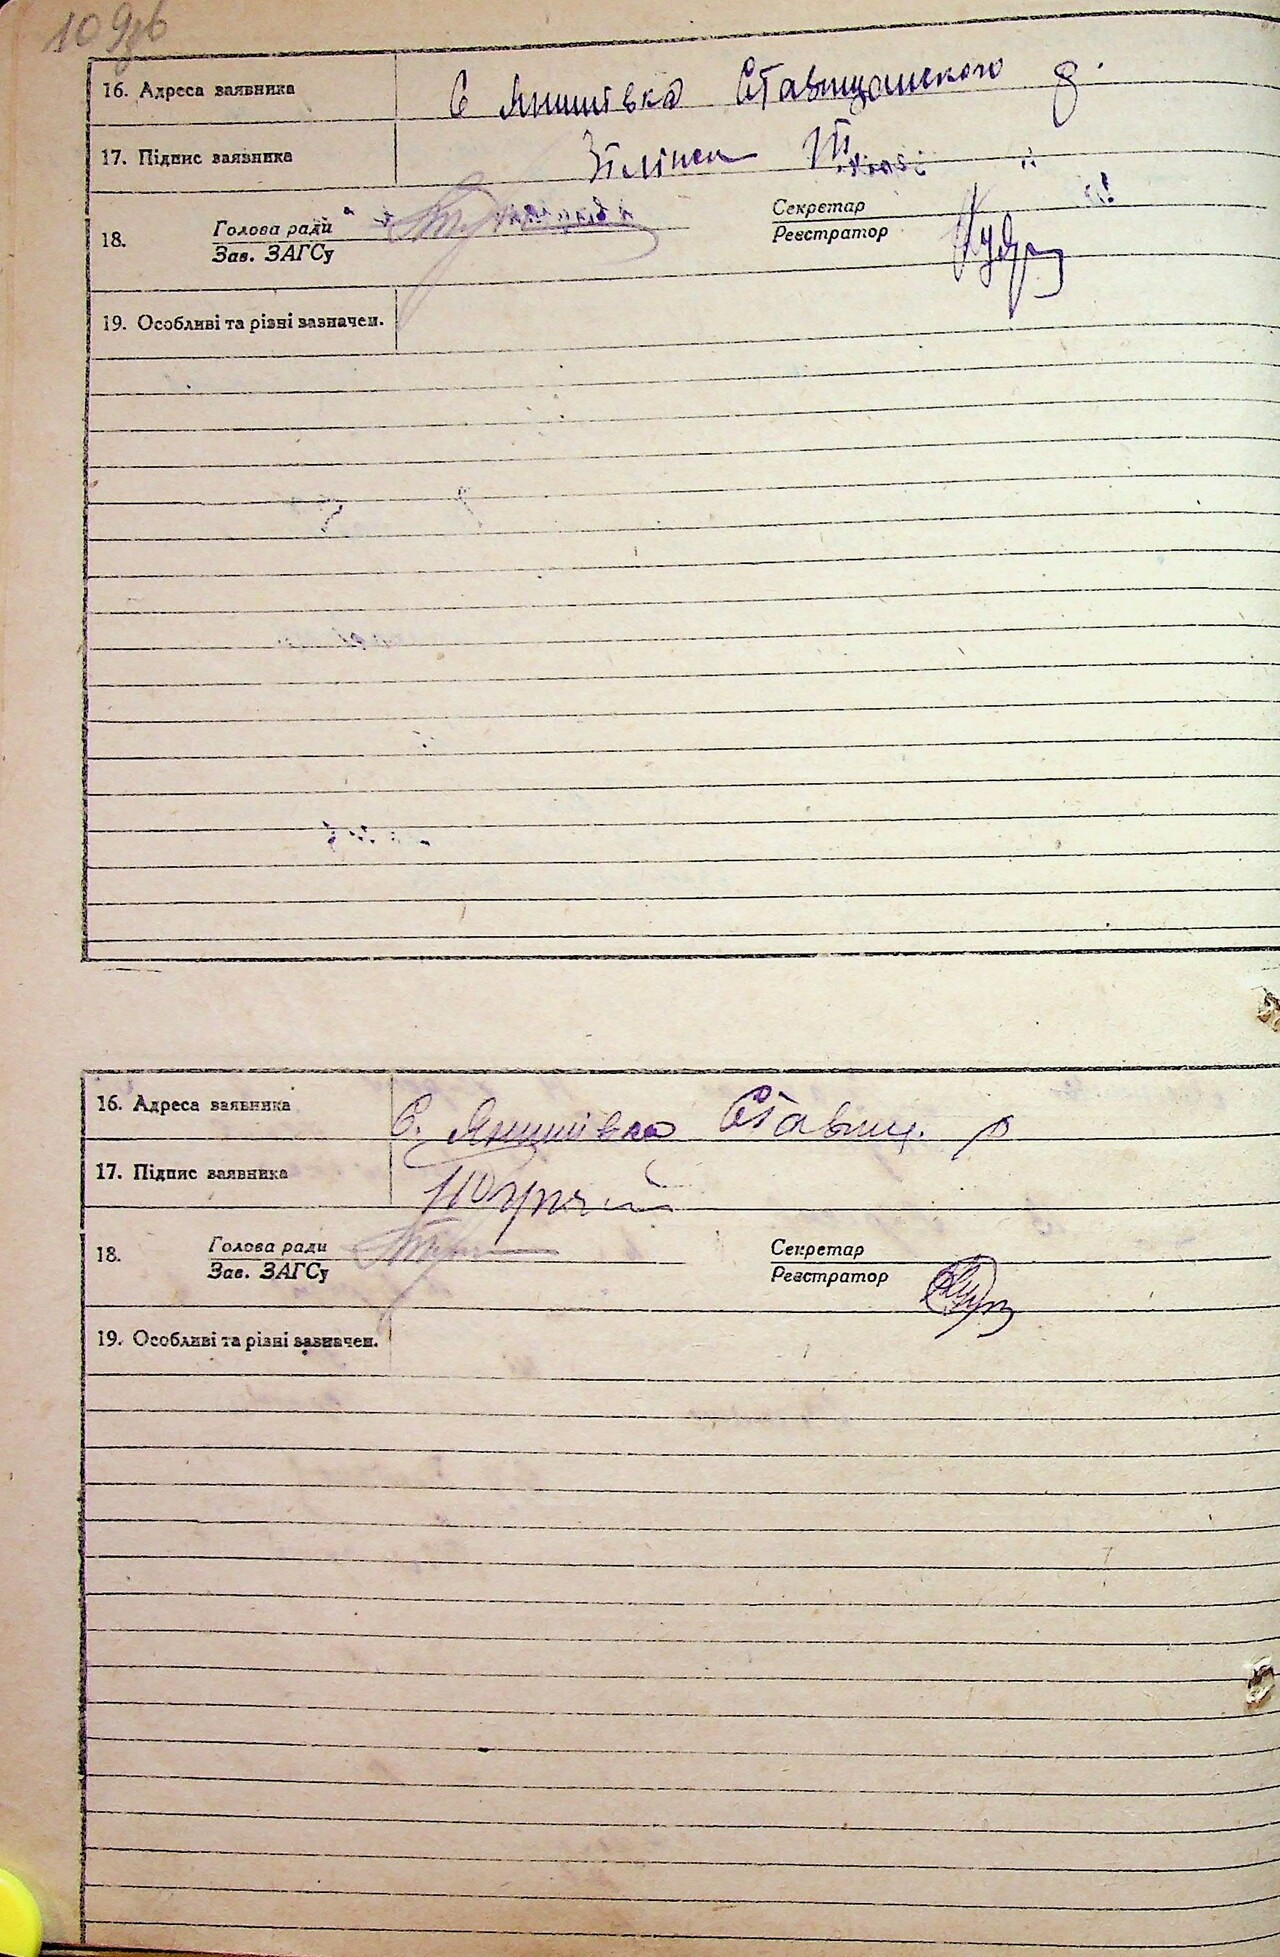 109зв
16. Адреса заявника С Янишівка Ставищанского р.
17. Підпис заявника
18. Голова ради Секретар
Зав. ЗАГСу Реєстратор
19. Особливі та різні зазначен.
16. Адреса заявника С. Янишівка Ставищ. р
17. Підпис заявника
18. Голова ради Секретар
Зав. ЗАГСу Реєстратор
19. Особливі та різні зазначен.